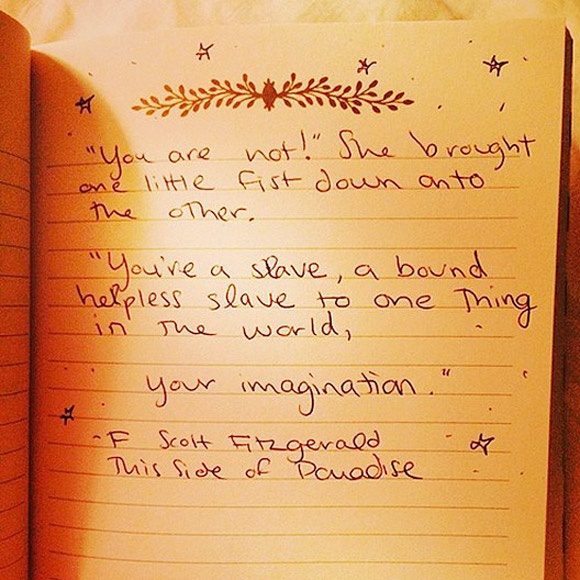 "You are not!" She brought
one little fist down onto
the other.
"You're a slave, a bound
helpless slave to one thing
in the world,
your imagination."
-F Scott Fitzgerald
This Side of Paradise